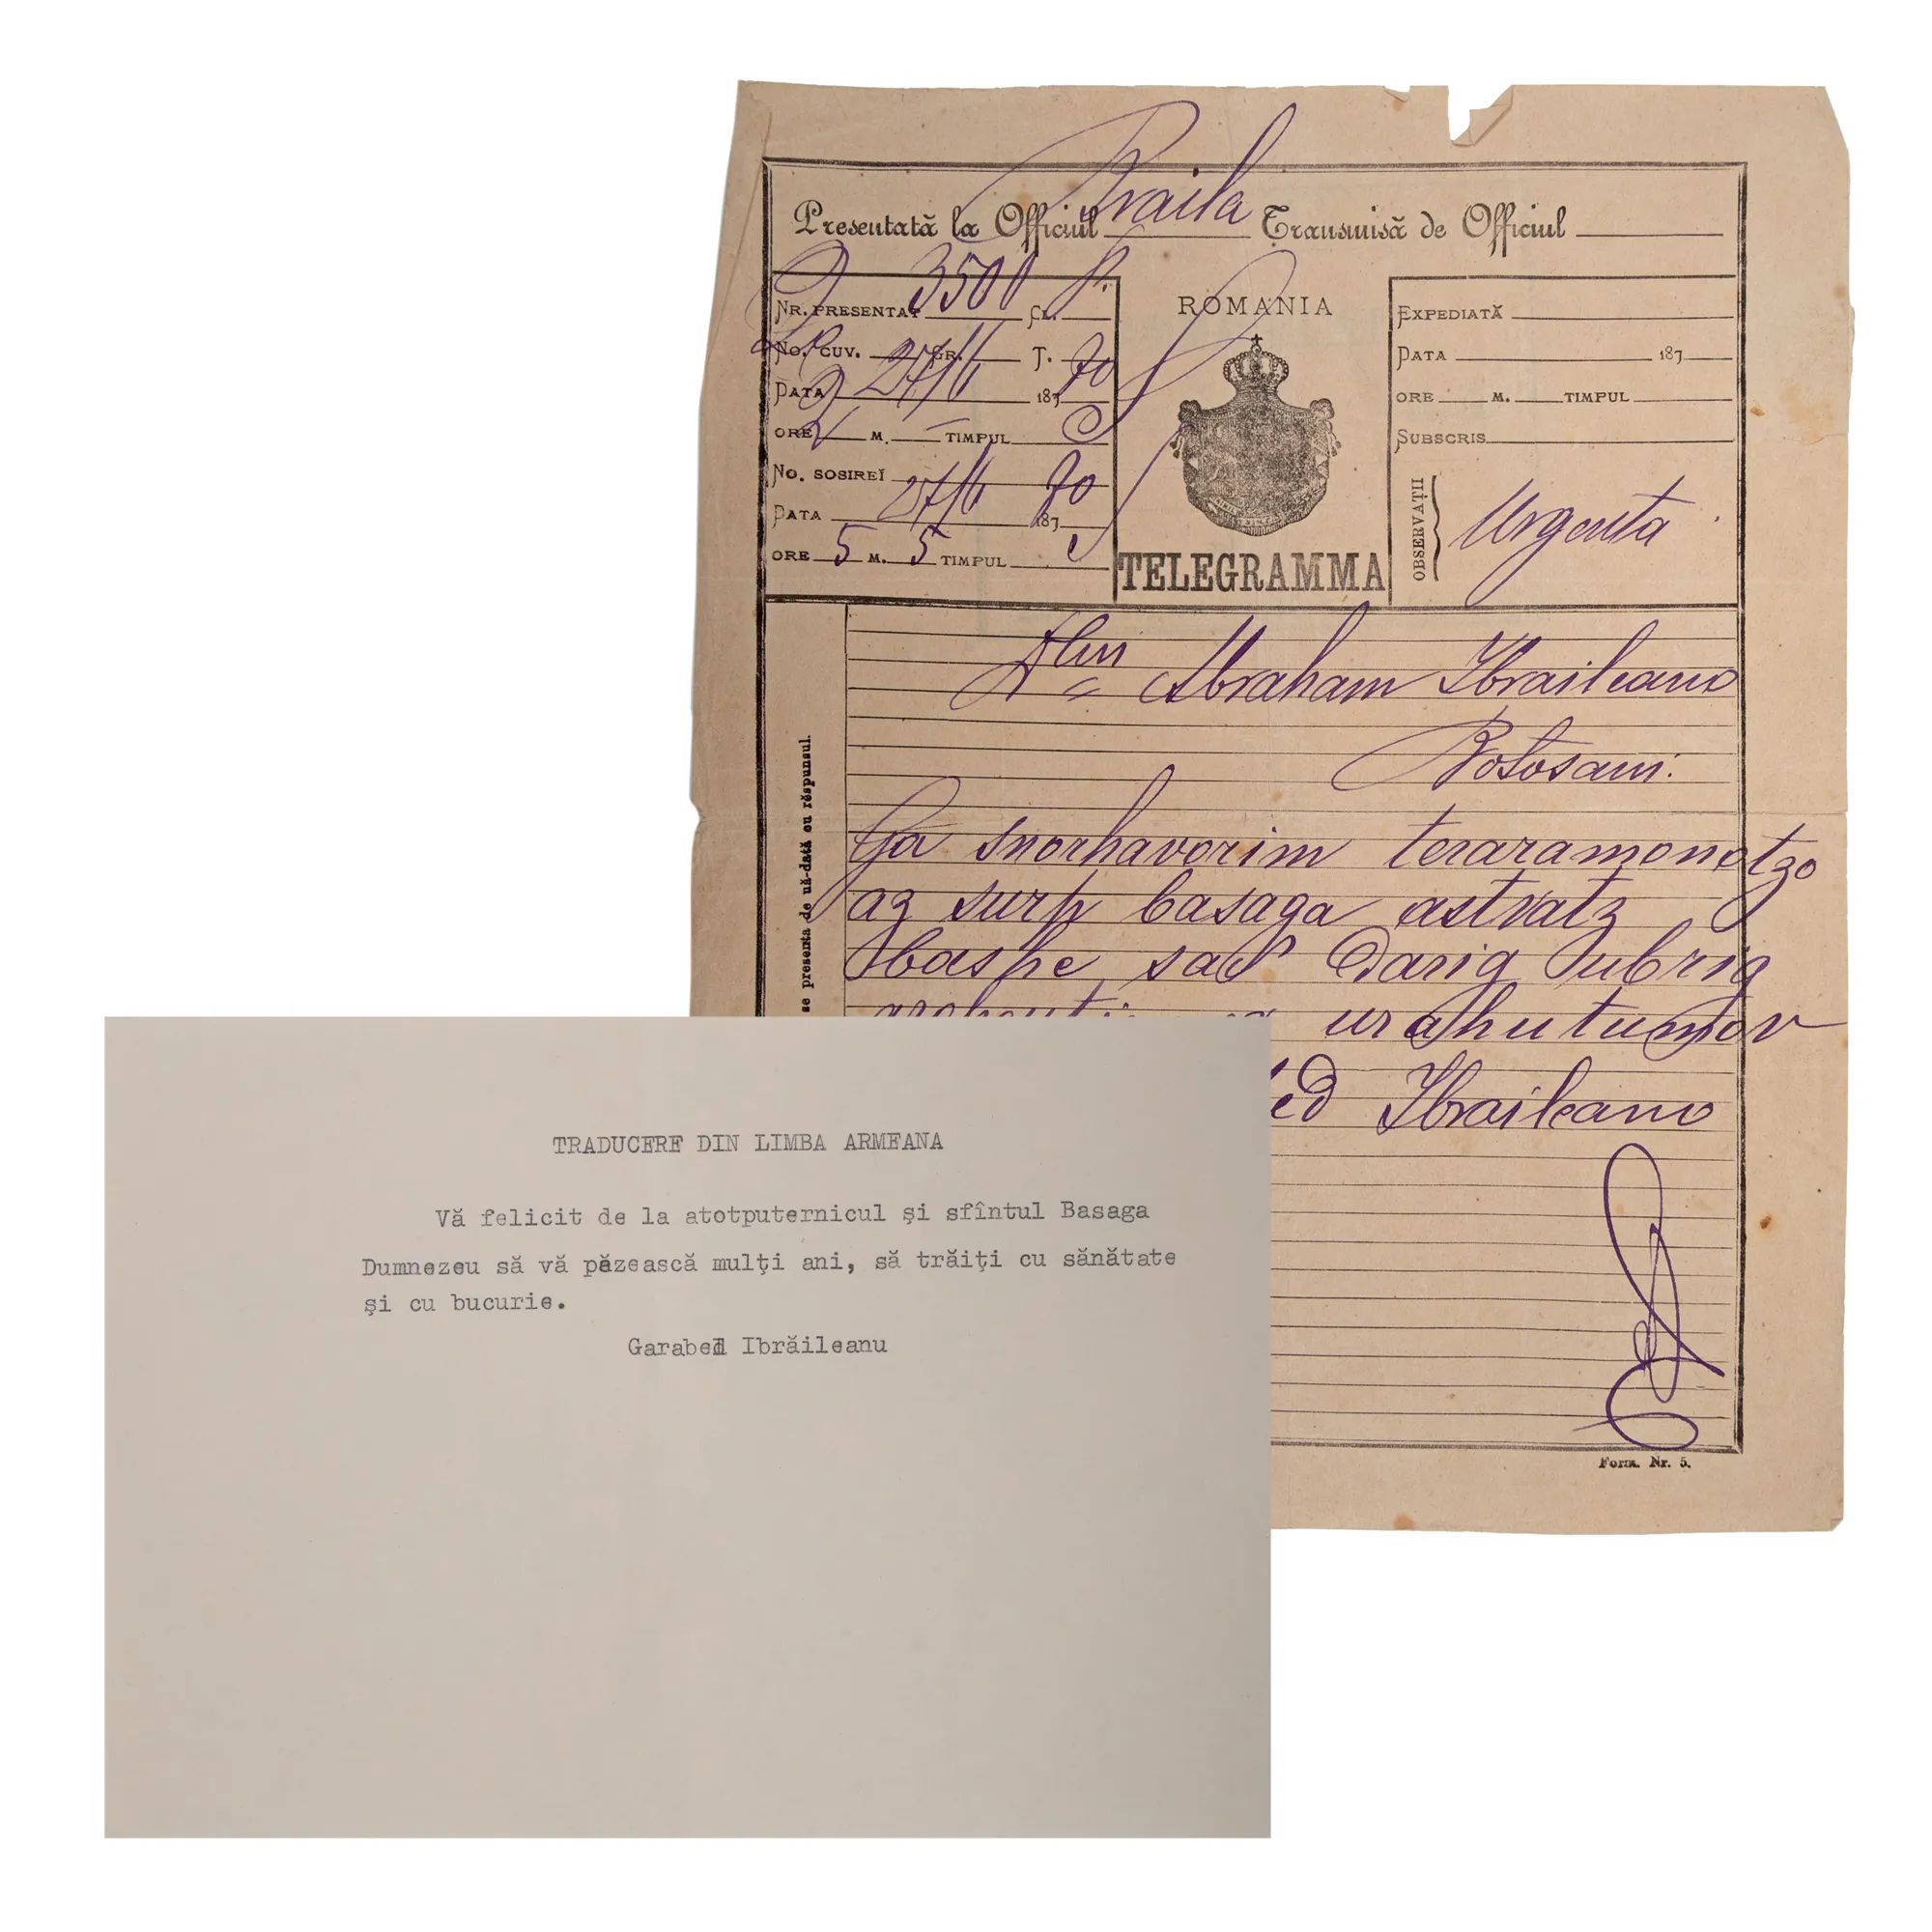 Braila
Presentată la Officiul Transmisă de Officiul
NR. PRESENTAT 3500 CL.
No. CUV. GR. T.
DATA 27/6 187 70
ORE 2 M. — TIMPUL
No. SOSIREĬ
DATA 27/6 187 70
ORE 5 M. 5 TIMPUL
ROMANIA
TELEGRAMMA
EXPEDIATĂ
DATA 187
ORE M. TIMPUL
SUBSCRIS
OBSERVAȚII
Urgenta
Abraham Ibraileano
Botosani.
se presenta de uă-dată cu răspunsul.
Ga snorhavorim teraramonotzo
az surp basaga astvatz
baspe sad Darig ubrig
urahutumov
ed Ibraileano
Form. Nr. 5.
TRADUCERE DIN LIMBA ARMEANA
Vă felicit de la atotputernicul şi sfîntul Basaga
Dumnezeu să vă păzească mulţi ani, să trăiţi cu sănătate
şi cu bucurie.
Garabed Ibrăileanu